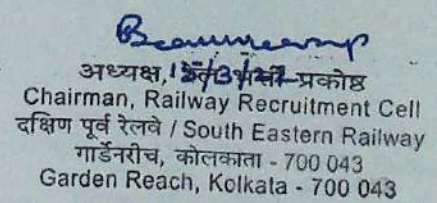 अध्यक्ष, प्रकोष्ठ
Chairman, Railway Recruitment Cell
दक्षिण पूर्व रेलवे / South Eastern Railway
गार्डेनरीच, कोलकाता - 700 043
Garden Reach, Kolkata - 700 043